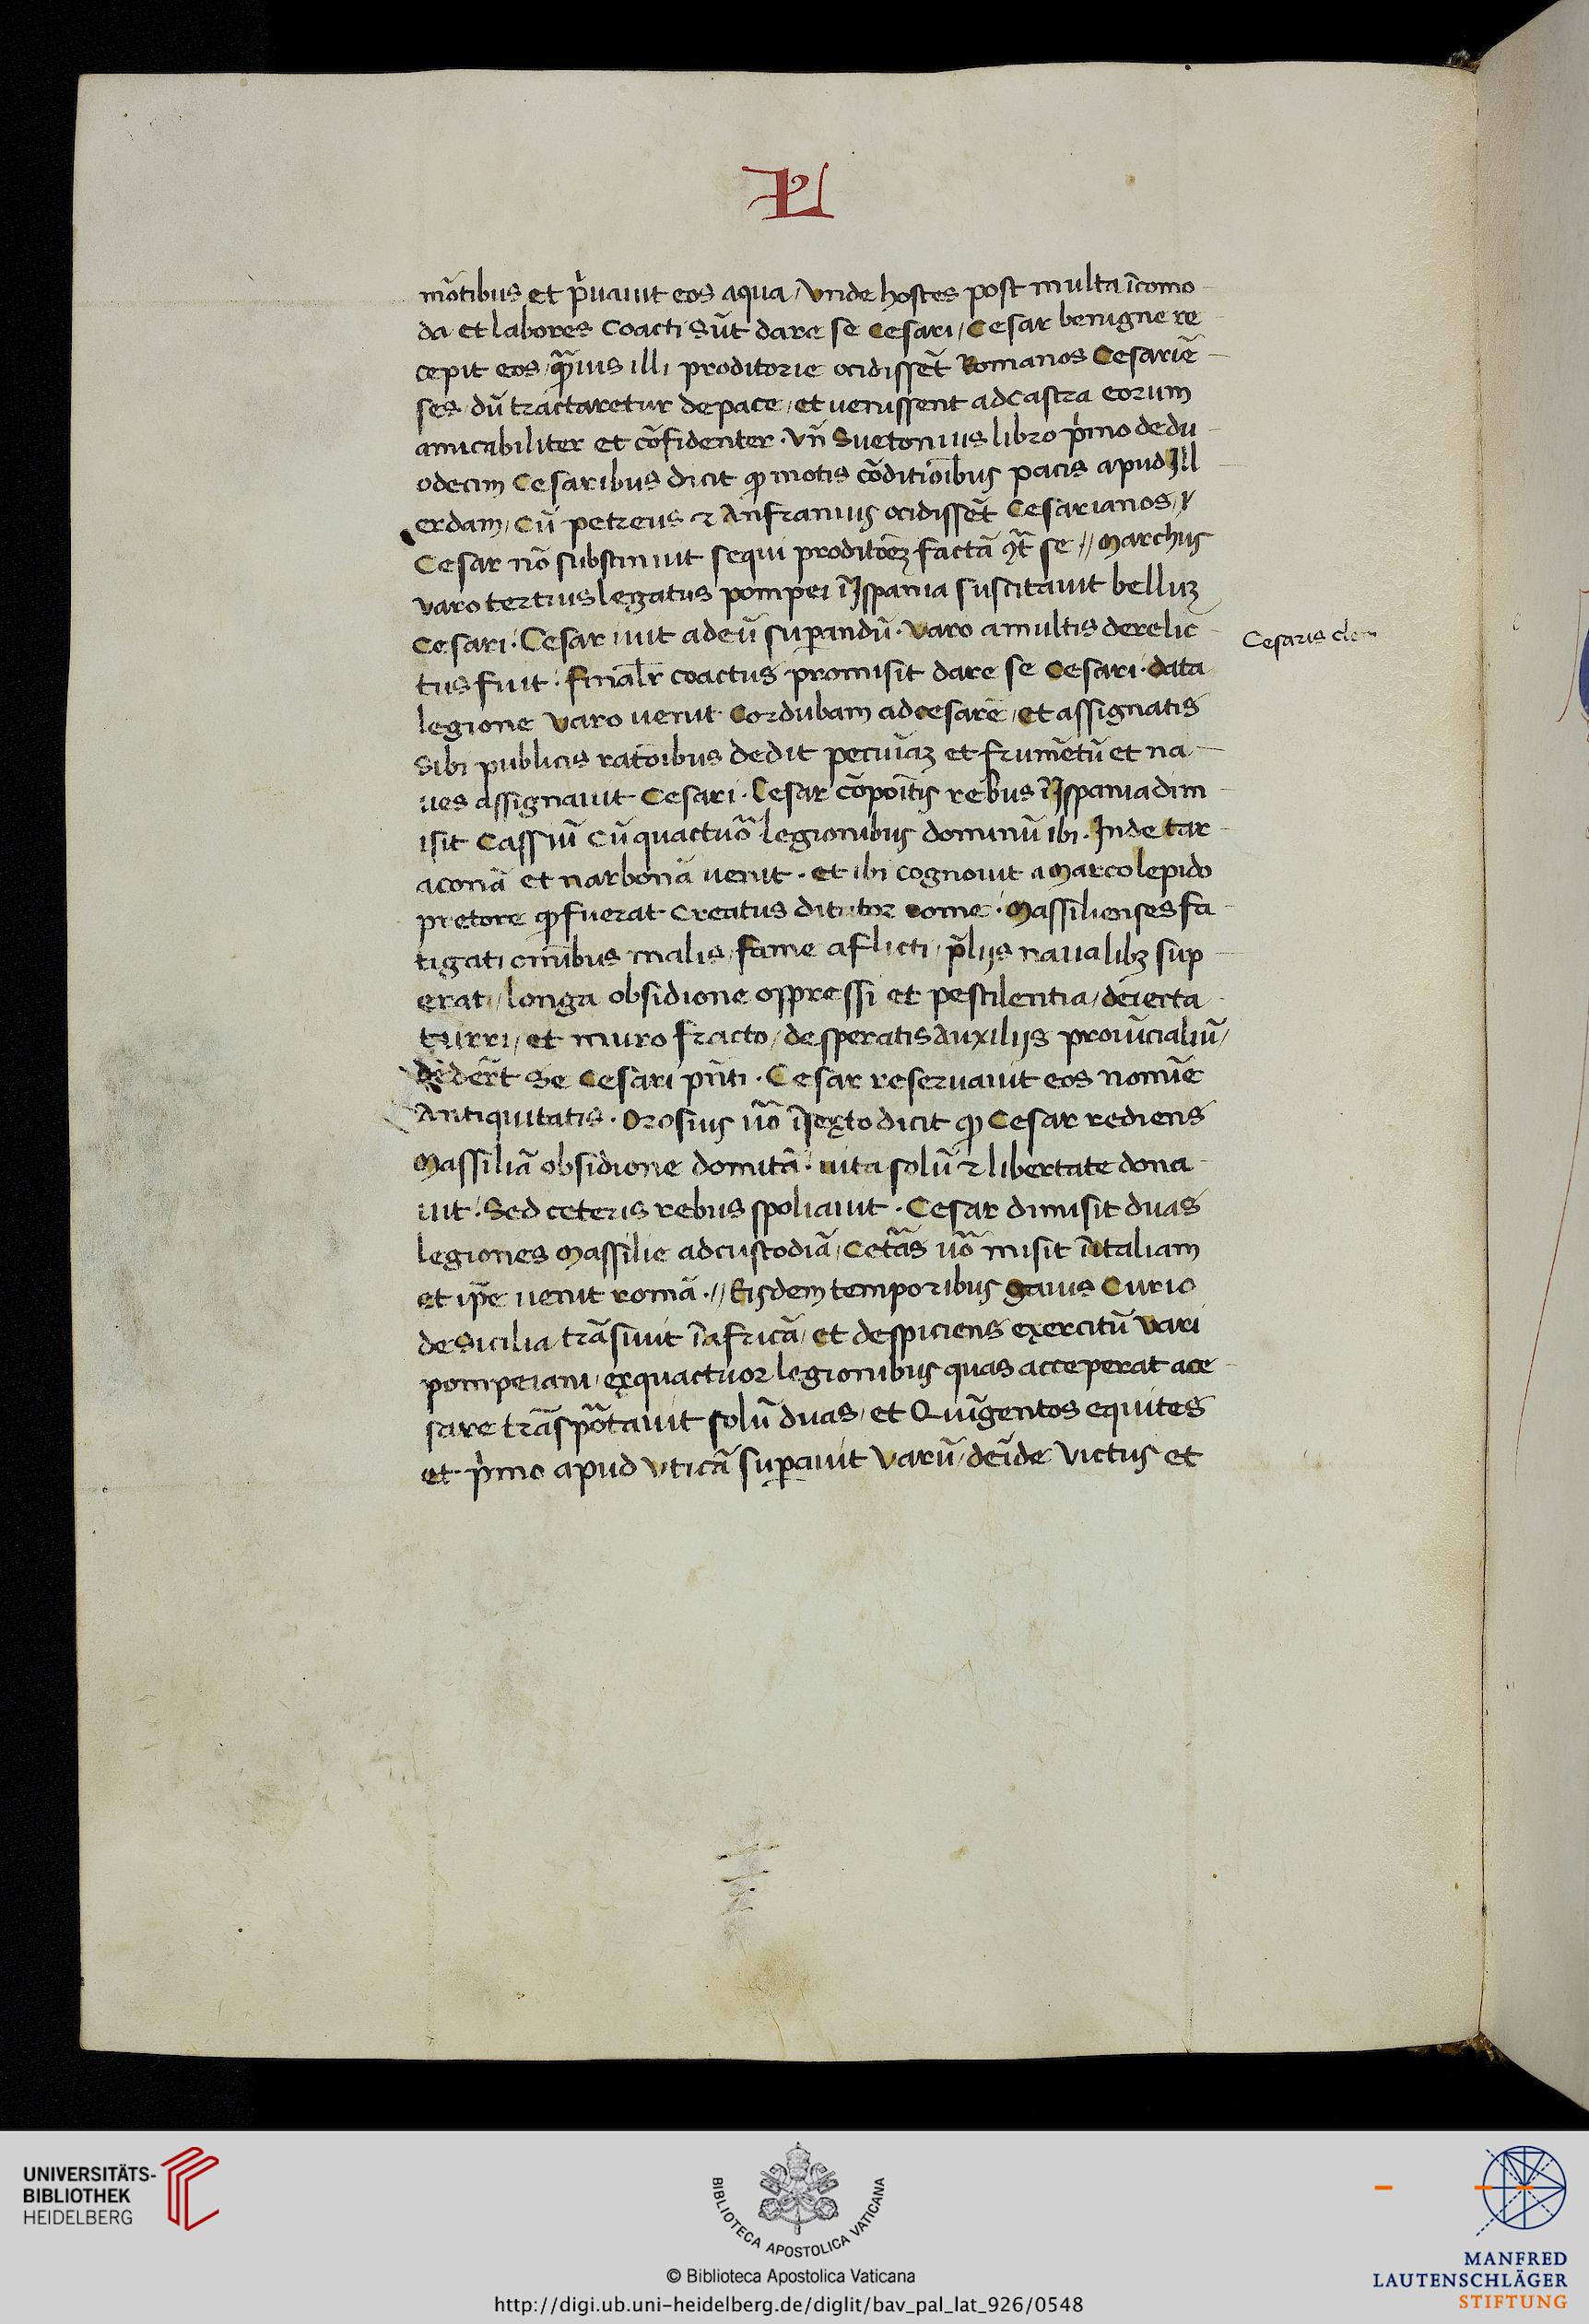 L
mõtibus et p̍uauit eos aqua / vnde hostes post multa ĩcomo
da et labores coacti sũt dare se Cesari / Cesar benigne re
cepit eos / quãuis illi proditorie ocidissẽt Romanos Cesariẽ
ses / dũ tractaretur de pace / et uenissent ad castra eorum
amicabiliter et cõfidenter · vñ Suetonius libro p̍mo de du
odecim Cesaribus dicit ꝙ motis cõditiõibus pacis apud Ill
erdam / cũ petreus ⁊ Anfranius ocidissẽt Cesarianos /
Cesar nõ substinuit sequi proditõeꝫ factã ꝯt̃ se // Marchus
varo tertius legatus pompei ĩ Ispania suscitauit belluꝫ
Cesari · Cesar iuit ad eũ suꝑandũ · varo a multis derelic
tus fuit · finalr̃ coactus promisit dare se Cesari · data
legione varo uenit Cordubam ad cesarẽ / et assignatis
sibi publicis ratõibus dedit pecũiaꝫ et frumẽtũ et na
ues assignauit Cesari · Cesar cõpoĩtis rebus ĩ Ispania dim
isit Cassiũ cũ quactuõ legionibus dominũ ibi · Inde tar
aconã et narbonã uenit · et ibi cognouit a Marco lepido
pretore ꝙ fuerat creatus ditator rome · Massilienses fa
tigati omĩbus malis / fame aflicti / p̃lijs naualibꝫ sup
erati / longa obsidione oppressi et pestilentia / deiecta
turri / et muro fracto / desperatis auxilijs prouĩcialiũ /
dedert̃ se Cesari pñti · Cesar reseruauit eos nomĩe
Antiquitatis · Orosius uõ ĩ sexto dicit ꝙ Cesar rediens
Massiliã obsidione domitã · uita solũ ⁊ libertate dona
uit · Sed ceteris rebus spoliauit · Cesar dimisit duas
legiones Massilie ad custodiã / Cetãs uõ misit ĩ italiam
et ip̃e uenit romã · // Eisdem temporibus gaius Curio
de Sicilia trãsiuit ĩ africã / et despiciens exercitũ vari
pompeiani / ex quactuor legionibus quas acceperat a ce
sare trãspõtauit solũ duas / et Quĩgentos equites
et p̍mo apud vticã suꝑauit varũ / deĩde victus et
Cesaris clem
UNIVERSITÄTS-
BIBLIOTHEK
HEIDELBERG
BIBLIOTECA APOSTOLICA VATICANA
© Biblioteca Apostolica Vaticana
http://digi.ub.uni-heidelberg.de/diglit/bav_pal_lat_926/0548
MANFRED
LAUTENSCHLÄGER
STIFTUNG